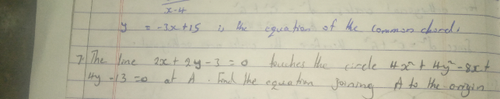 x-4
y = -3x+15 is the equation of the common chord.
7. The line 2x + 2y - 3 = 0 touches the circle 4x² + 4y² - 8x +
4y - 13 = 0 at A. Find the equation joining A to the origin